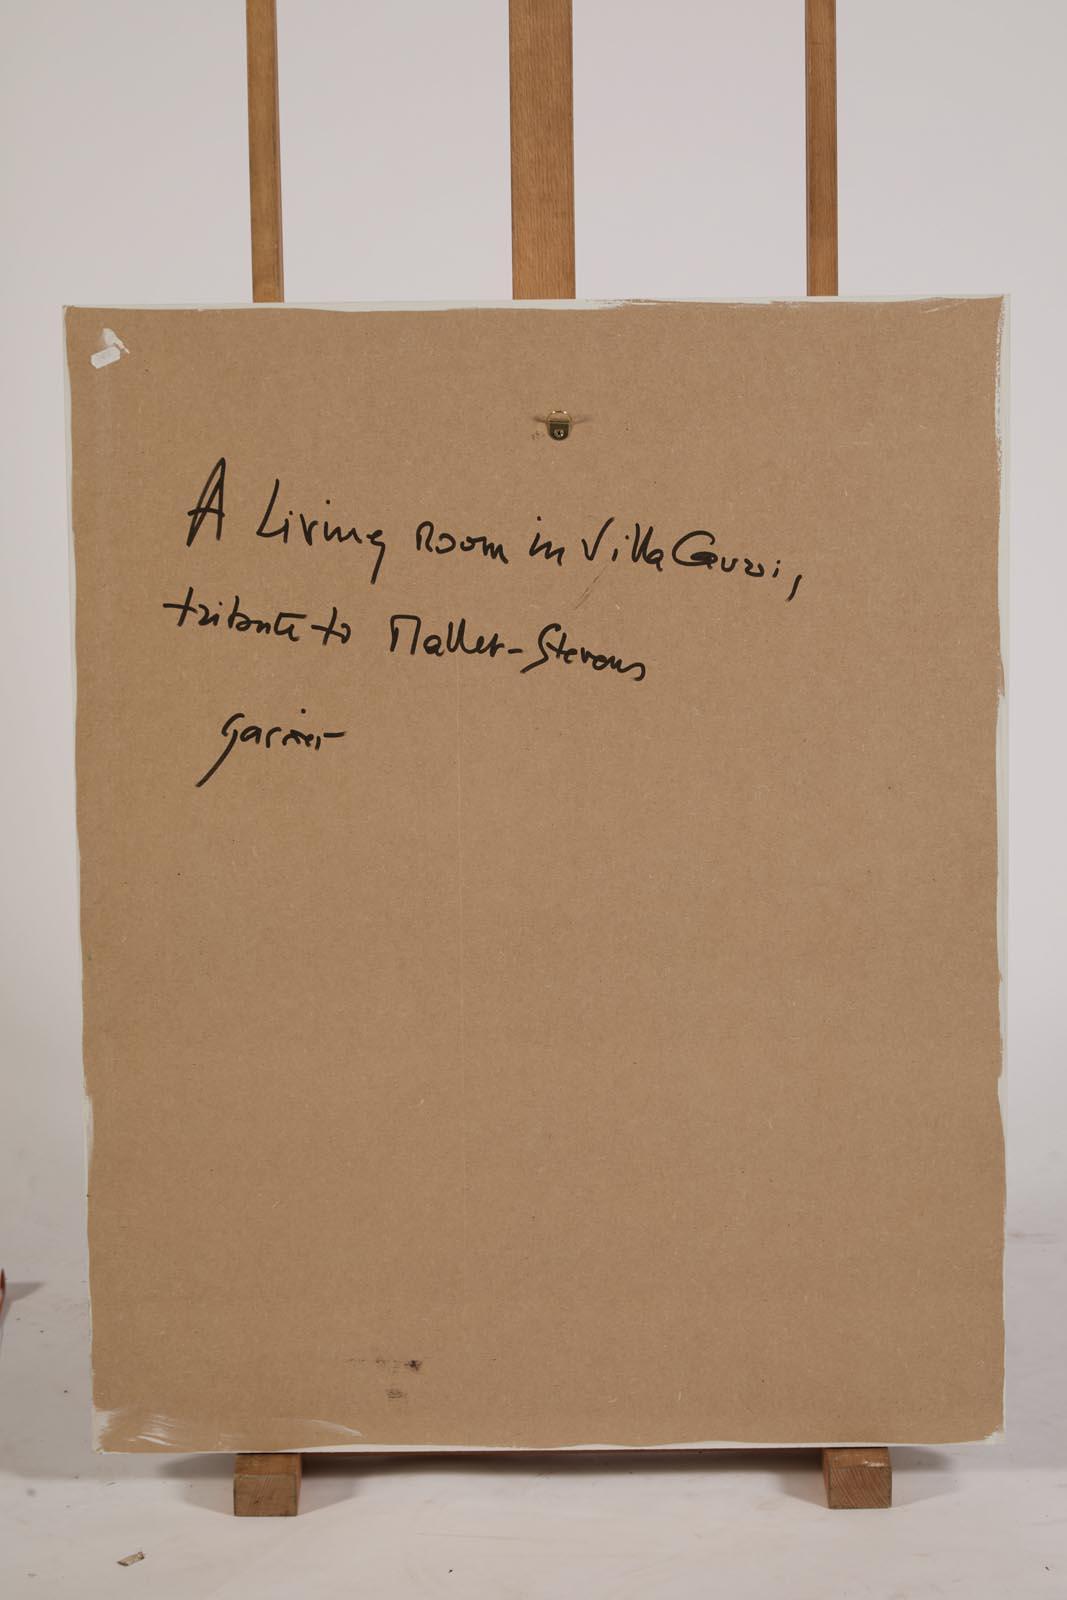 A Living Room in Villa Cavroi,
tribute to Mallet-Stevens
garnier